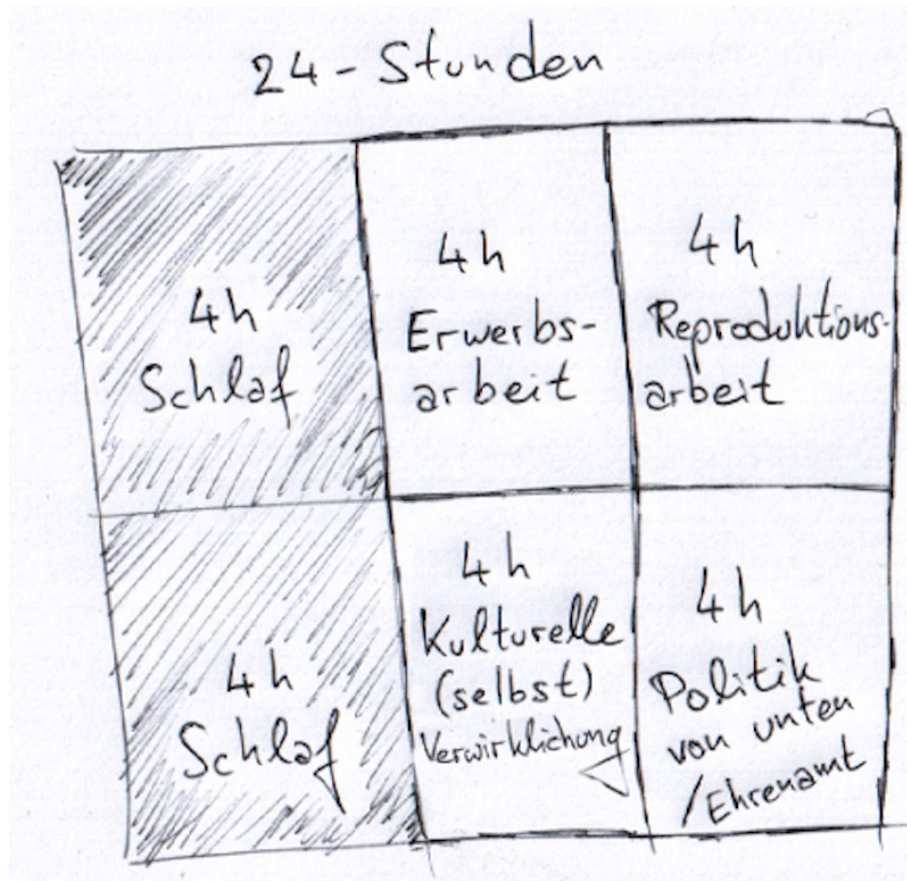 24-Stunden
4h
Schlaf
4h
Erwerbs-
arbeit
4h
Reproduktions-
arbeit
4h
Schlaf
4h
Kulturelle
(selbst)
Verwirklichung
4h
Politik
von unten
/Ehrenamt